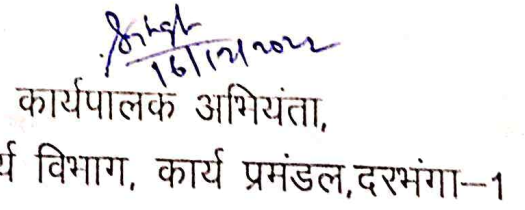 16/12/2022
कार्यपालक अभियंता,
र्य विभाग, कार्य प्रमंडल,दरभंगा-1